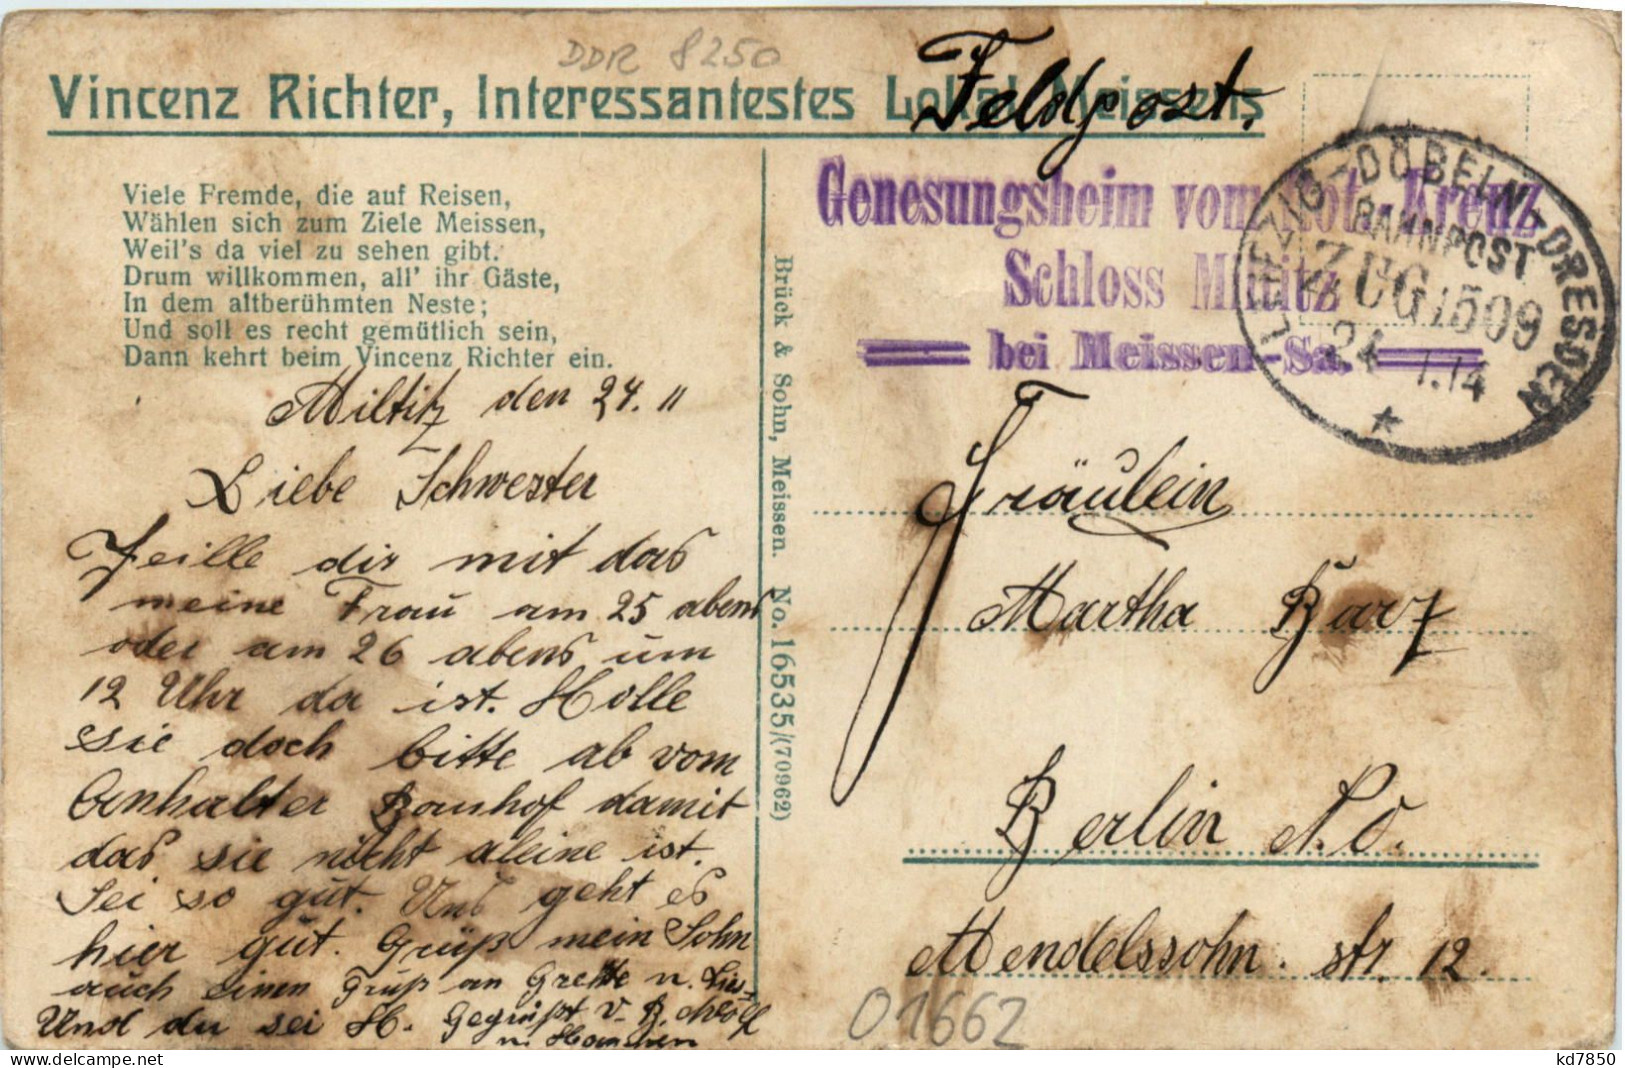 DDR 8250
Vincenz Richter, Interessantestes Lokal Meissens
Feldpost.
Viele Fremde, die auf Reisen,
Wählen sich zum Ziele Meissen,
Weil's da viel zu sehen gibt.
Drum willkommen, all' ihr Gäste,
In dem altberühmten Neste;
Und soll es recht gemütlich sein,
Dann kehrt beim Vincenz Richter ein.
Miltitz den 24. 11
Liebe Schwester
Teille dir mit das
meine Frau am 25 abens
oder am 26 abens um
12 Uhr da ist. Holle
sie doch bitte ab vom
Anhalter Banhof damit
das sie nicht aleine ist.
Sei so gut. Uns geht es
hier gut. Grüß mein Sohn
auch einen Gruß an Grette u.
Und du sei H. Gegrüßt v. B.
u.
Brück & Sohn, Meissen. No. 16535/(70962)
Genesungsheim vom Rot. Kreuz
Schloss Miltitz
bei Meissen-Sa.
LEIPZIG-DÖBELN-DRESDEN
BAHNPOST
ZUG 1509
24 .14
Fräulein
Martha Barz
Berlin N.O.
Mendelssohn. str. 12.
01662
kd7850